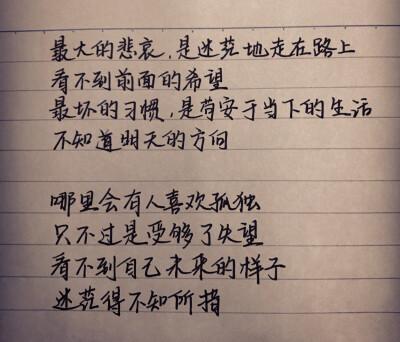 最大的悲哀，是迷茫地走在路上
看不到前面的希望
最坏的习惯，是苟安于当下的生活
不知道明天的方向
哪里会有人喜欢孤独
只不过是受够了失望
看不到自己未来的样子
迷茫得不知所措